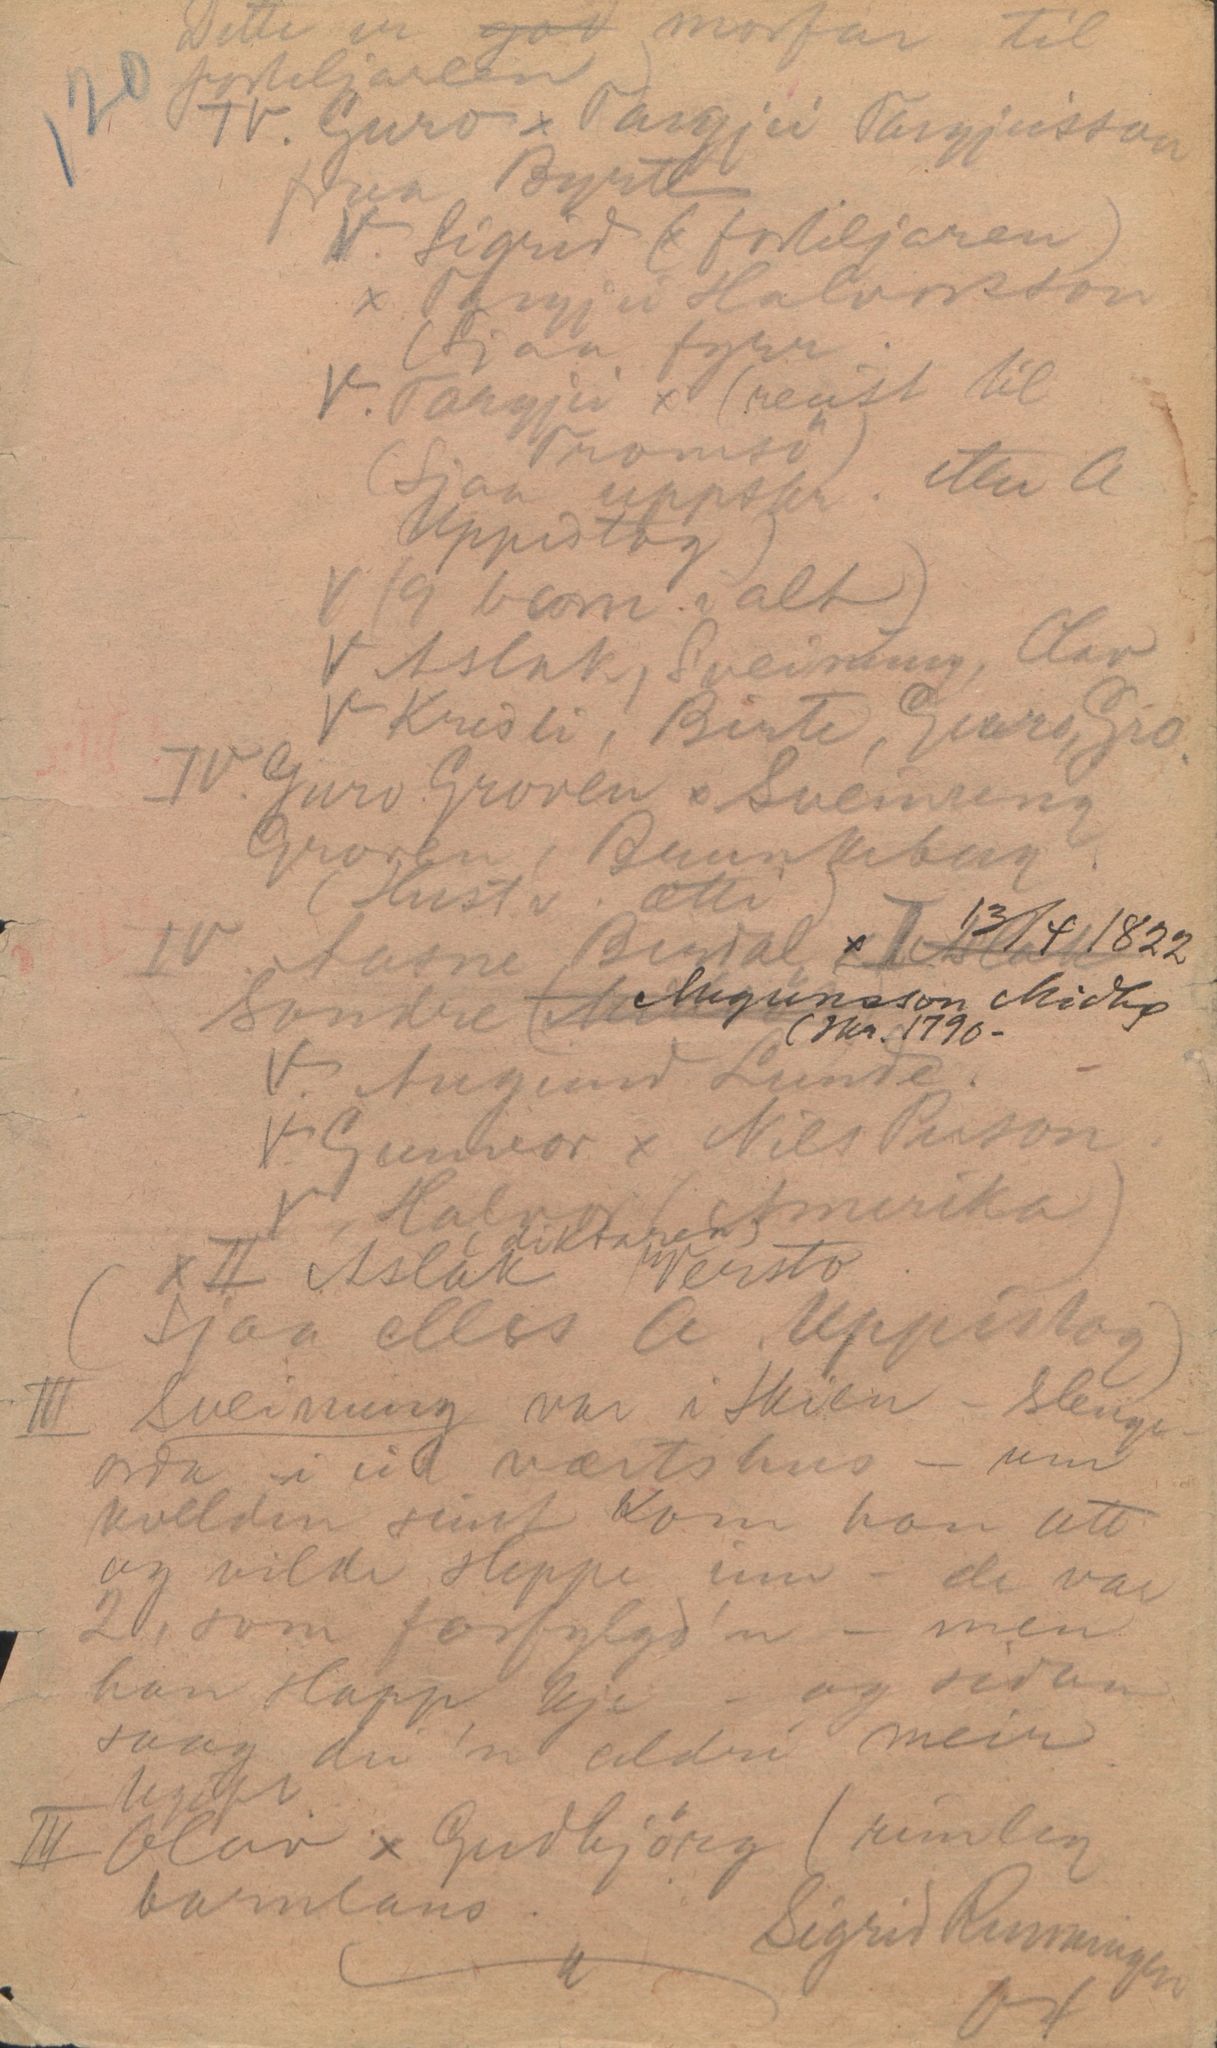 Dette er god morfar til
forteljaren)
120
IV. Guro x Targjei Targjeisson
fraa Byrte
V. Sigrid (forteljaren)
x Targjei Halvorsson
(Sjaa fyrr.
V. Targjei x (reist til
Tromsö)
(Sjaa uppskr. etter A
Uppistog)
V (9 born i alt)
V Aslak, Sveinung, Olav
V Kristi, Birte, Guro, Gro.
IV. Guro Groven x Sveinung
Groven, Brunkeberg.
(Hust v. ætti)
IV. Aasne Berdal x I Aslak 13/4 1822
Söndre Augunsson Midb
(Skr. 1790-
V. Augund Lunde. -
V. Gunvor x Nils Person.
V. Halvor (Amerika)
(diktaren)
x II Aslak Versto
(Sjaa elles A. Uppistog)
III Sveinung var i Skien - slengde
orda i eit værtshus - um
kvelden seint kom han att
og vilde sleppe inn - de var
2, som forfylgd'n - men
han slapp kje - og sidan
saag dei'n aldri meir.
ugift.
III Olav x Gudbjörg (rimleg
barnlaus.
Sigrid Runningen